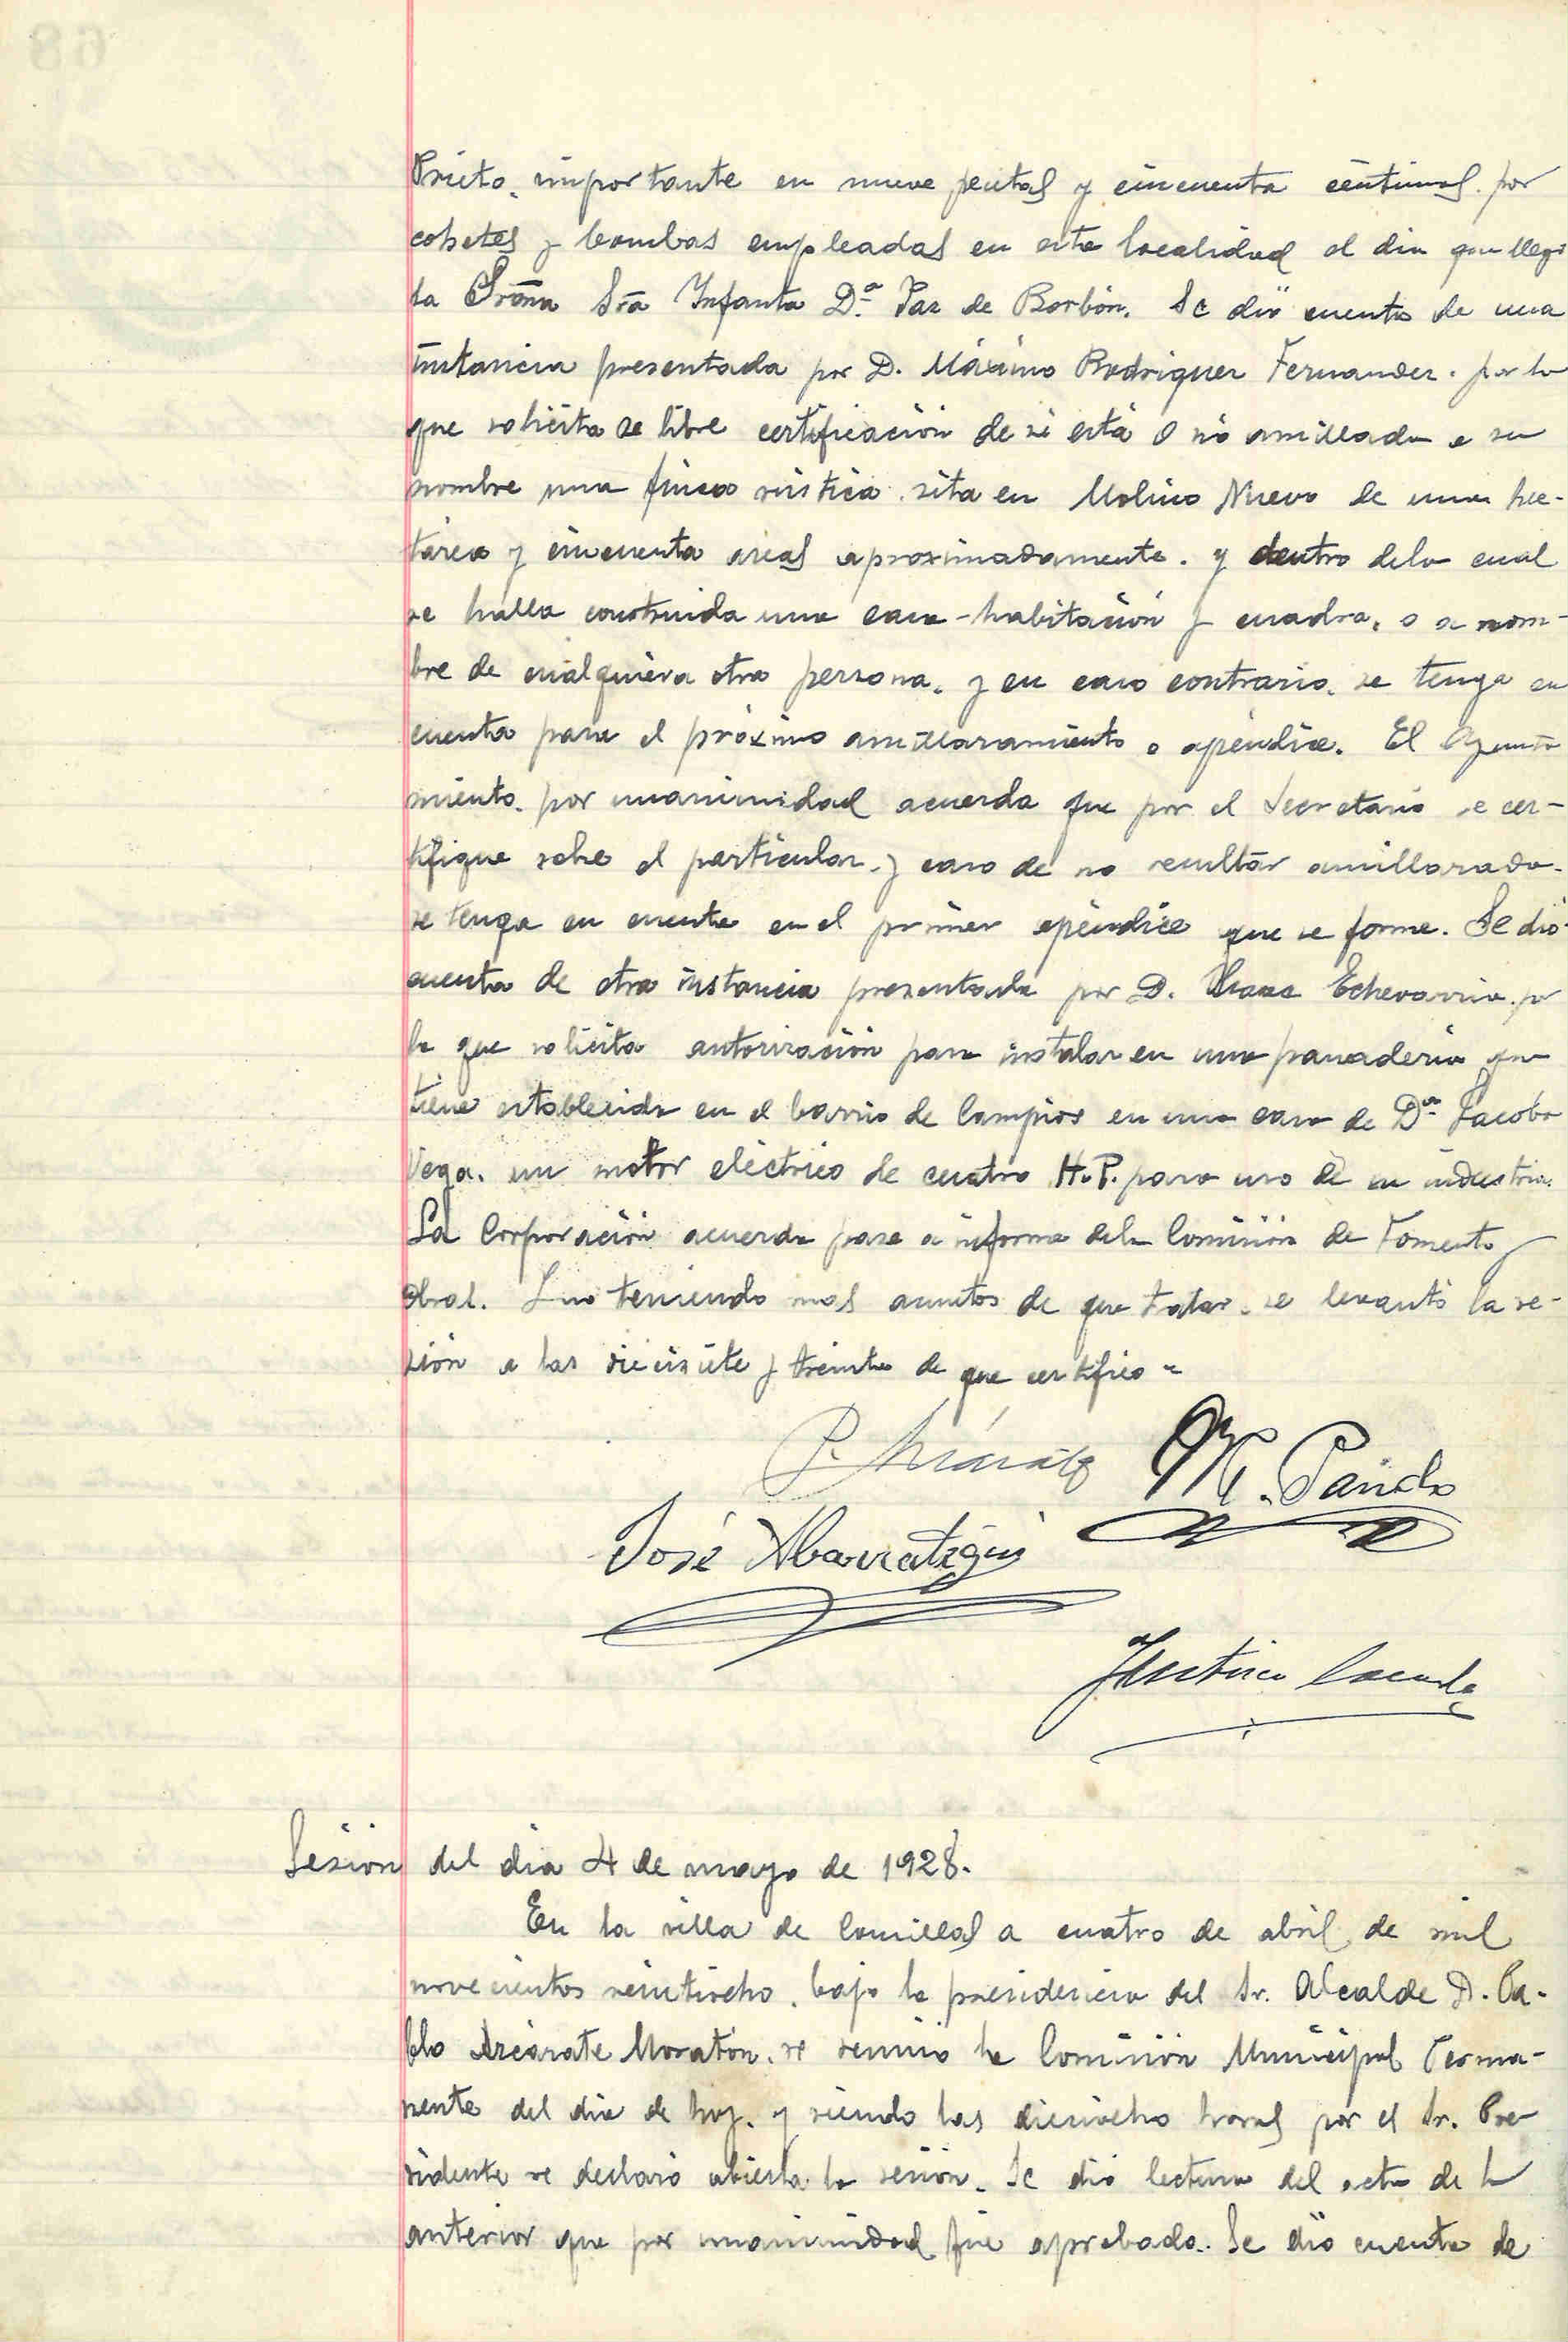 Prieto, importante en nueve pesetas y cincuenta céntimos, por
cohetes y bombas empleadas en esta localidad el dia que llegó
la Srma Sra Infanta D.ª Paz de Borbón. Se dió cuenta de una
instancia presentada por D. Máximo Rodriguez Fernandez, por la
que solicita se libre certificación de si está o no amillarada a su
nombre una finca rústica, sita en Molino Nuevo de una hec-
tárea y cincuenta areas aproximadamente, y dentro de la cual
se halla construida una casa-habitación y cuadra, o a nom-
bre de cualquiera otra persona, y en caso contrario, se tenga en
cuenta para el próximo amillaramiento o apéndice. El Ayunta
miento, por unanimidad acuerda que por el Secretario se cer-
tifique sobre el particular, y caso de no resultar amillarada,
se tenga en cuenta en el primer apéndice que se forme. Se dió
cuenta de otra instancia presentada por D. Echevarria, por
la que solicita autorización para instalar en una panaderia que
tiene establecida en el barrio de Campios en una casa de Dª Jacoba
Vega, un motor eléctrico de cuatro H.P. para uso de su industria.
La Corporación acuerda pase a informe de la Comisión de Fomento
obral. Y no teniendo mas asuntos de que tratar, se levantó la se-
sión a las diecisiete y treinta de que certifico =
P. Azcárate M. Pando
José Abarrategui
Sesión del dia 4 de mayo de 1928.
En la villa de Comillas a cuatro de abril de mil
novecientos veintiocho, bajo la presidencia del Sr. Alcalde D. Pa-
blo Azcárate Moratón, se reunió la Comisión Municipal Perma-
nente del dia de hoy, y siendo las dieciocho horas por el Sr. Pre-
sidente se declaró abierta la sesión. Se dió lectura del acta de la
anterior que por unanimidad fué aprobada. Se dió cuenta de